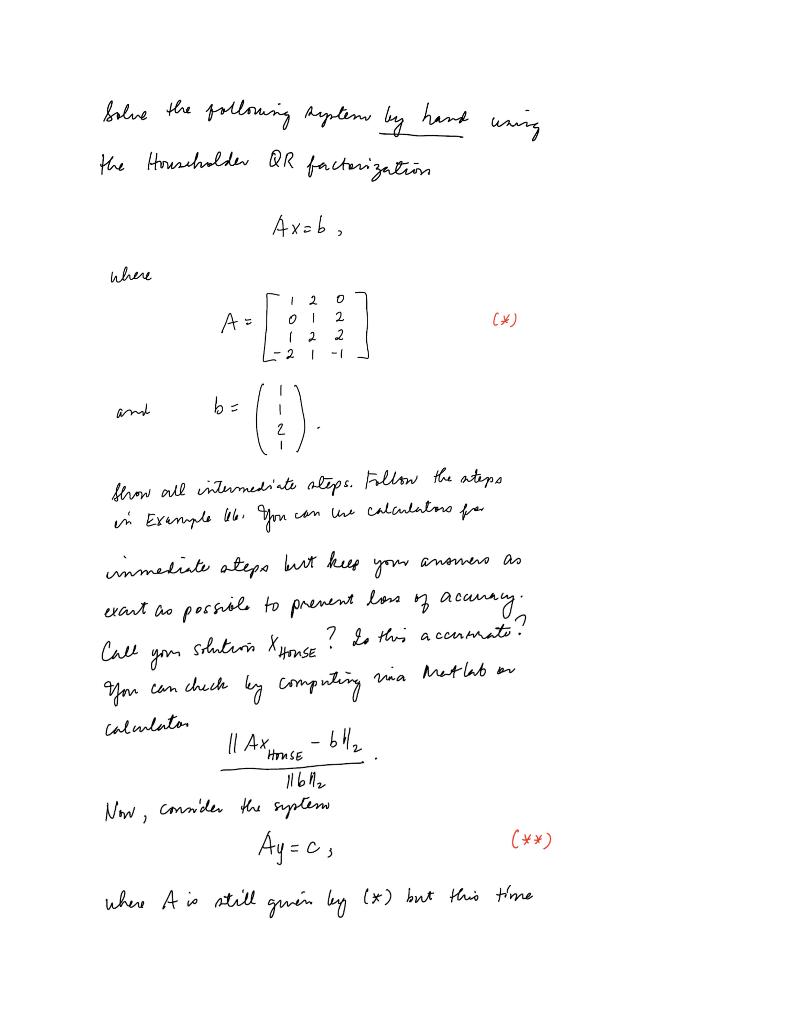 Solve the following system by hand using
the Householder QR factorization
Ax=b,
where
A = [ 1 2 0
0 1 2
1 2 2
-2 1 -1 ] (*)
and b = ( 1
1
2
1 ) .
Show all intermediate steps. Follow the steps
in Example . You can use calculators for
immediate steps but keep your answers as
exact as possible to prevent loss of accuracy.
Call your solution X_HOUSE ? Is this accurate?
You can check by computing via Matlab or
calculator
|| Ax_HOUSE - b ||_2
|| b ||_2 .
Now, consider the system
Ay = c, (**)
where A is still given by (*) but this time